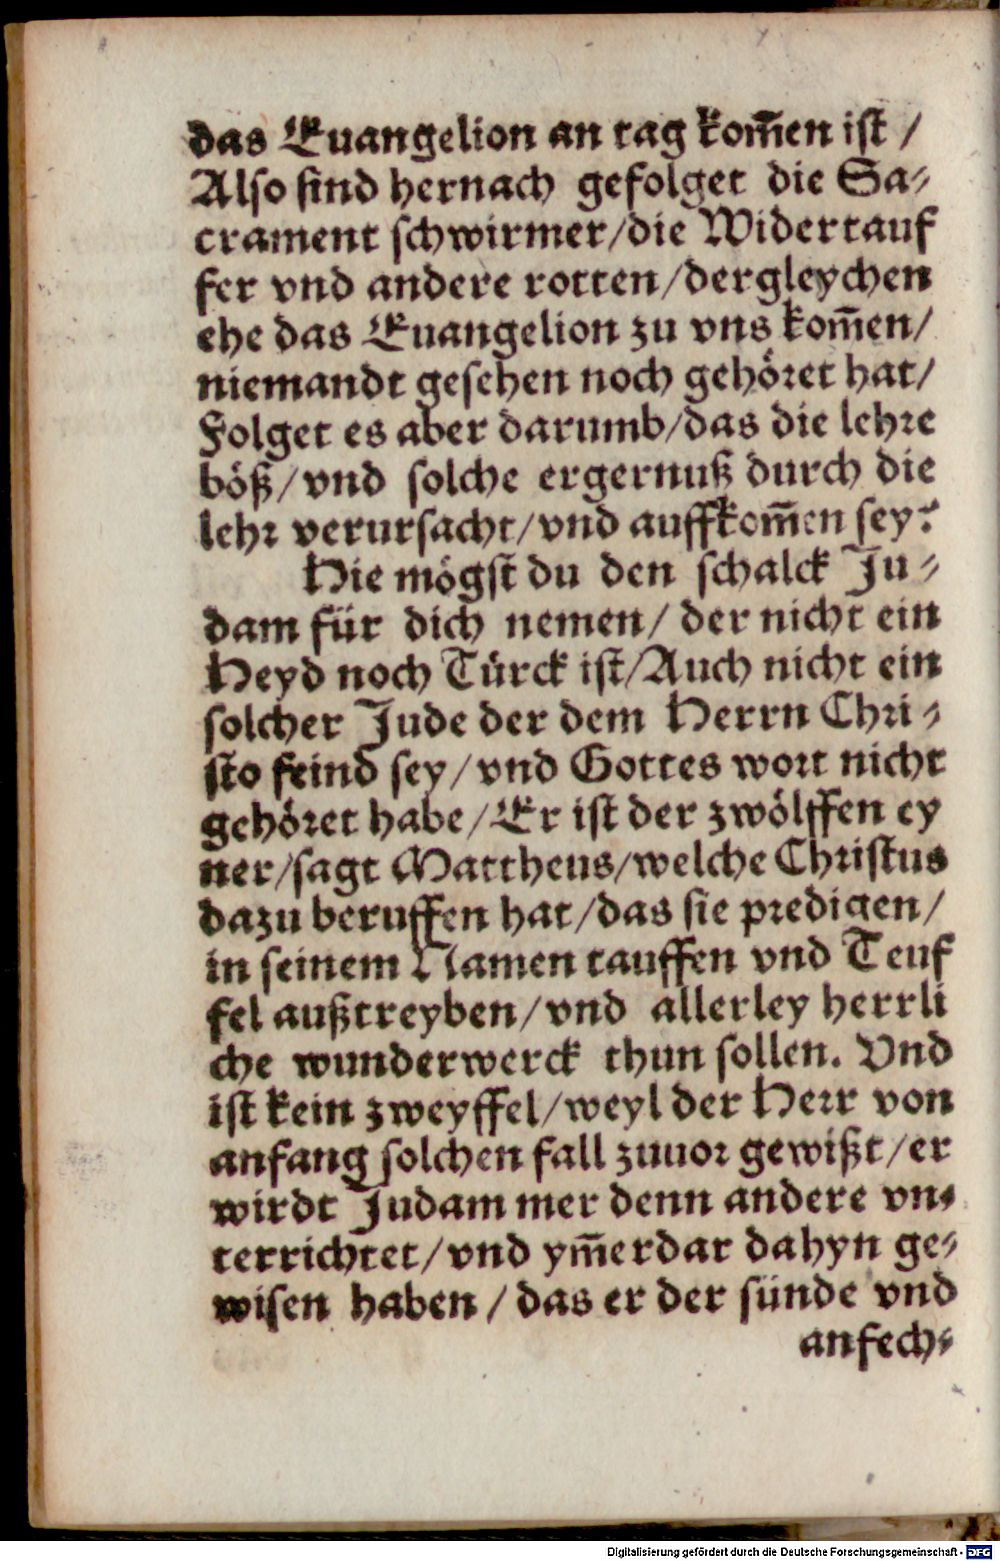 das Euangelion an tag kom̃en ist /
Also sind hernach gefolget die Sa-
crament schwirmer/die Widertauf
fer vnd andere rotten/dergleychen
ehe das Euangelion zu vns kom̃en/
niemandt gesehen noch gehöret hat/
Folget es aber darumb/das die lehre
böß/vnd solche ergernuß durch die
lehr verursacht/vnd auffkom̃en sey?
Hie mögst du den schalck Ju-
dam für dich nemen/ der nicht ein
Heyd noch Türck ist/Auch nicht ein
solcher Jude der dem Herrn Chri-
sto feind sey/vnd Gottes wort nicht
gehöret habe/Er ist der zwölffen ey
ner/sagt Mattheus/welche Christus
dazu beruffen hat/das sie predigen/
in seinem Namen tauffen vnd Teuf
fel außtreyben/vnd allerley herrli
che wunderwerck thun sollen. Vnd
ist kein zweyffel/weyl der Herr von
anfang solchen fall zuuor gewißt/er
wirdt Judam mer denn andere vn-
terrichtet/vnd ym̃erdar dahyn ge-
wisen haben/das er der sünde vnd
anfech-
Digitalisierung gefördert durch die Deutsche Forschungsgemeinschaft - DFG